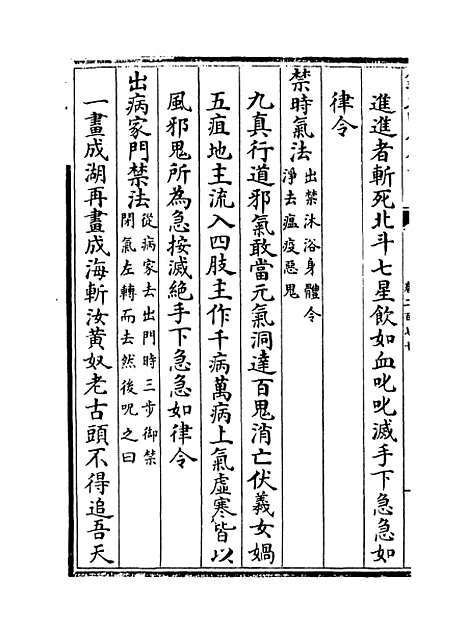 進進者斬死北斗七星飲如血叱叱滅手下急急如
律令
禁時氣法
出禁沐浴身體令
淨去瘟疫惡鬼
九真行道邪氣敢當元氣洞達百鬼消亡伏義女媧
五疽地主流入四肢主作千病萬病上氣虛寒皆以
風邪鬼所為急按滅絶手下急急如律令
出病家門禁法
從病家去出門時三步御禁
閉氣左轉而去然後呪之曰
一畫成湖再畫成海斬汝黃奴老古頭不得追吾天